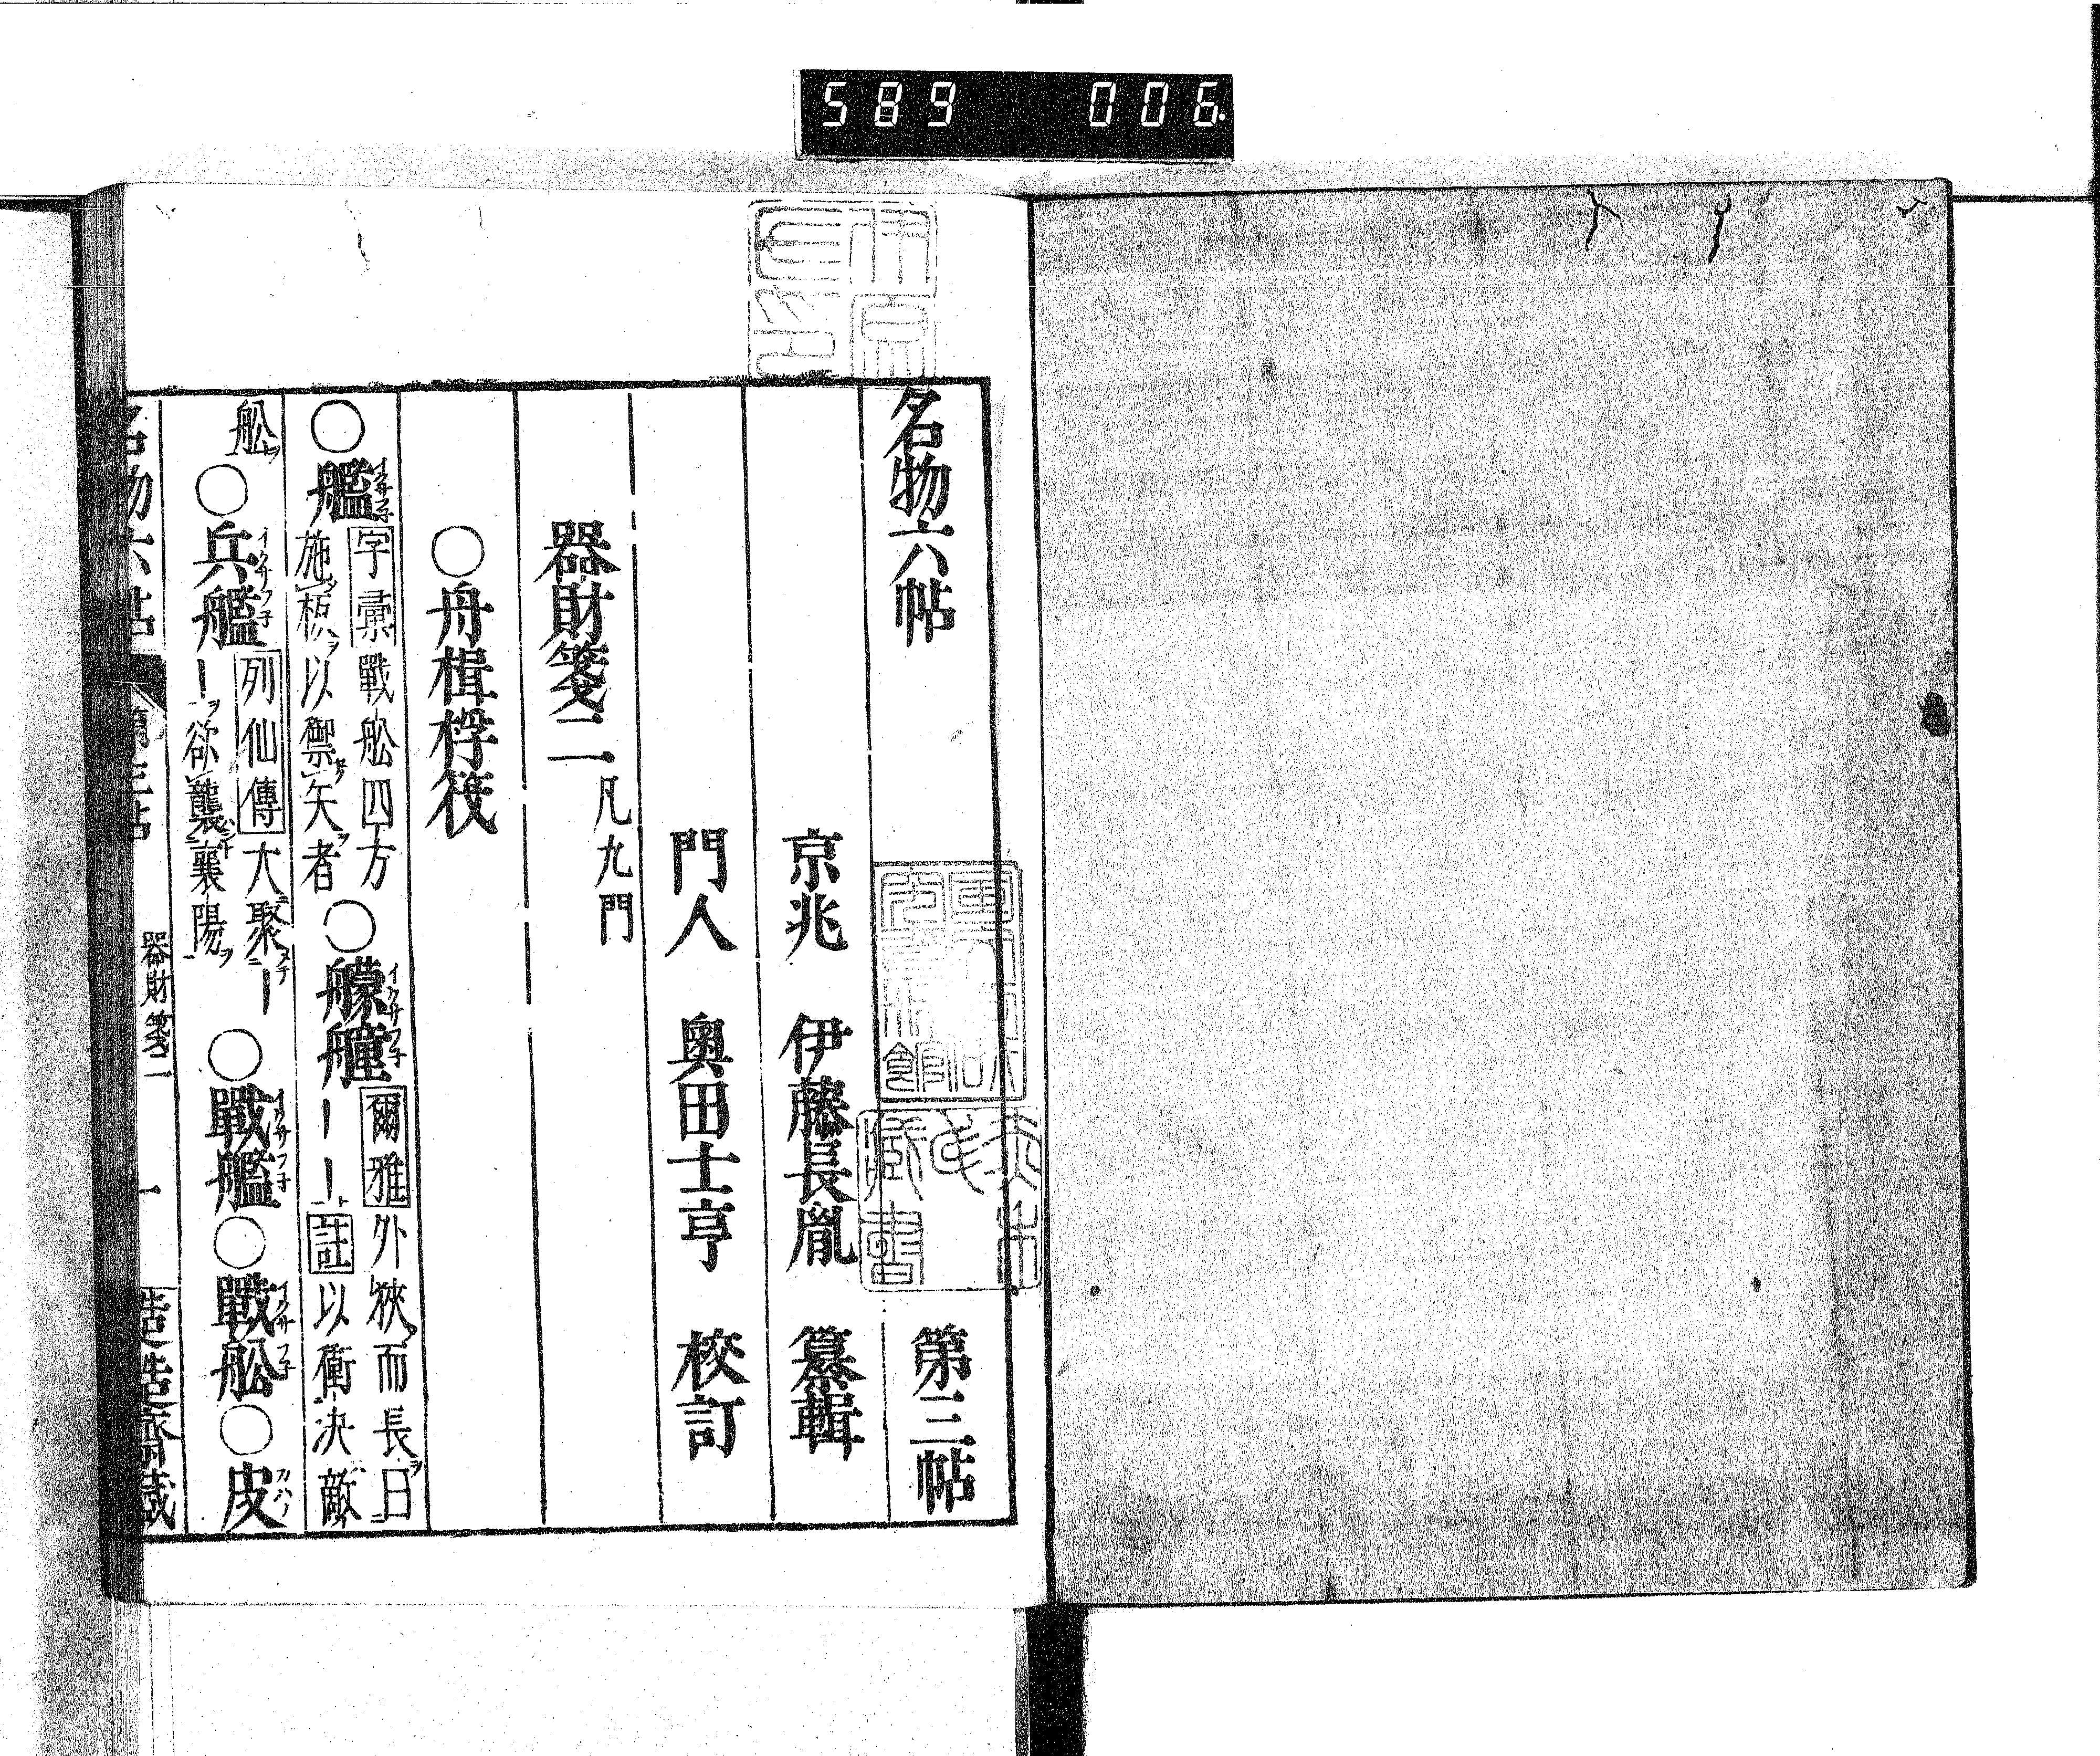 589 006
名物六帖 第三帖
京兆 伊藤長胤 纂輯
門人 奥田士亨 校訂
器財箋二 凡九門
○舟楫桴筏
○艦 イクサフ子 字彙 戰舩四方施板ヲ以禦矢ヲ者 ○艨艟 イクサフ子 爾雅 外狹而長曰ヲ二ーー一ト 註 以衝決敵
舩ヲ ○兵艦 イクサフ子 列仙傳 大聚ー ヲ欲襲襄陽ヲ ○戰艦 イクサフ子 ○戰舩 イクサフ子 ○皮 カハノ
名物六帖 第三帖 器財箋二 一